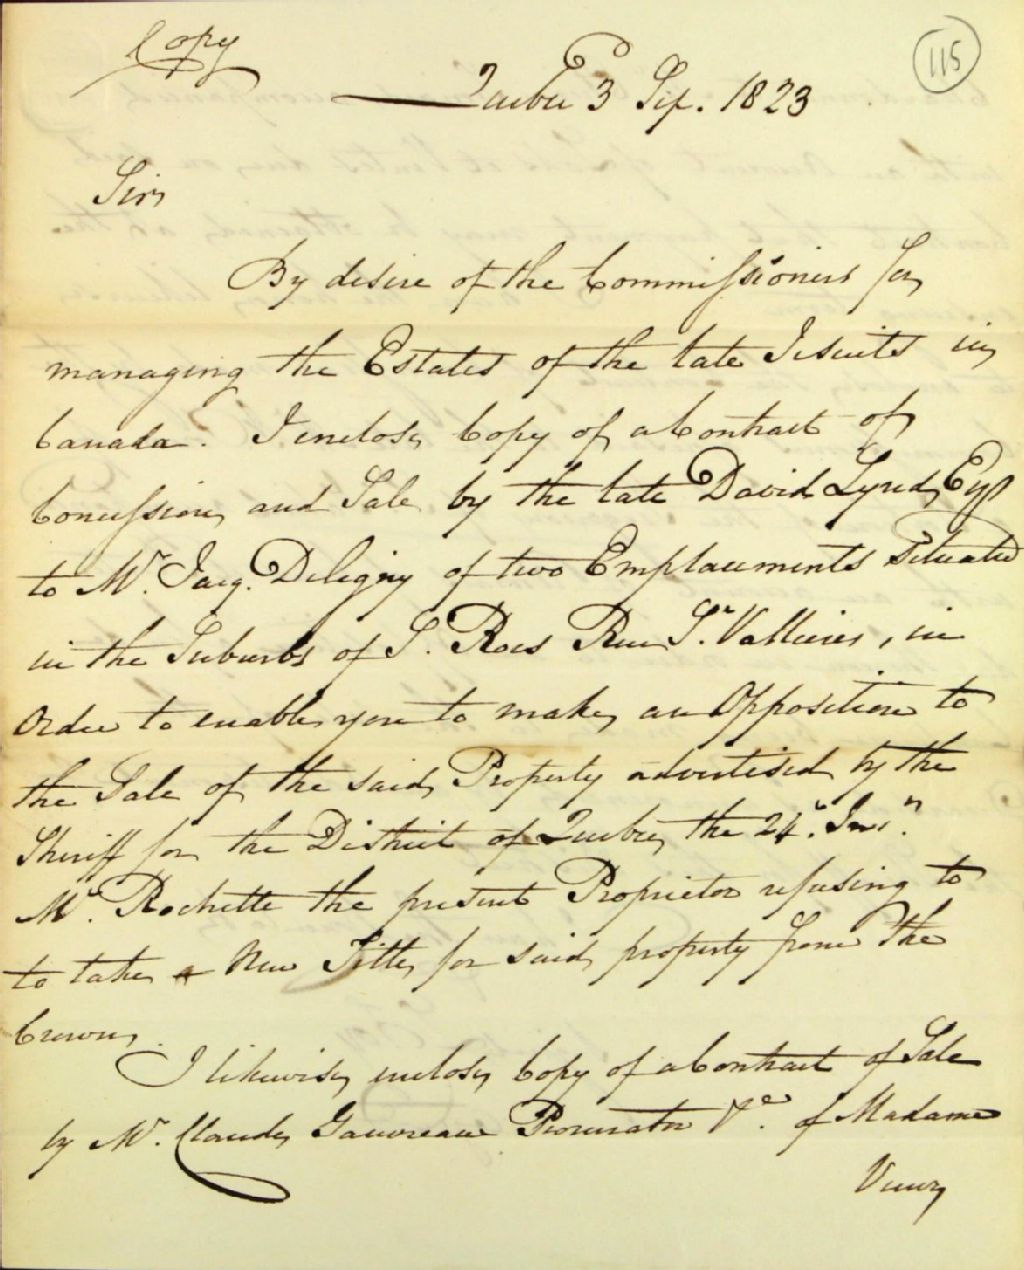 Copy
115
Quebec 3 Sep. 1823
Sir
By desire of the Commissioners for
managing the Estates of the late Jesuits in
Canada. I enclose Copy of a Contract of
Concession and Sale by the late David Lynd Esqr
to Mr. Jacq. Deligny of two Emplacements Situated
in the Suburbs of S. Rocs Rue St. Vallieres, in
Order to enable you to make an Opposition to
the Sale of the said Property advertised by the
Sheriff for the District of Quebec the 24. Inst.
Mr. Rochette the present Proprietor refusing to
to take a New Title for said property from the
Crown.
I likewise enclose Copy of a Contract of Sale
by Mr. Claude Gauvreau Procurator &c. of Madame